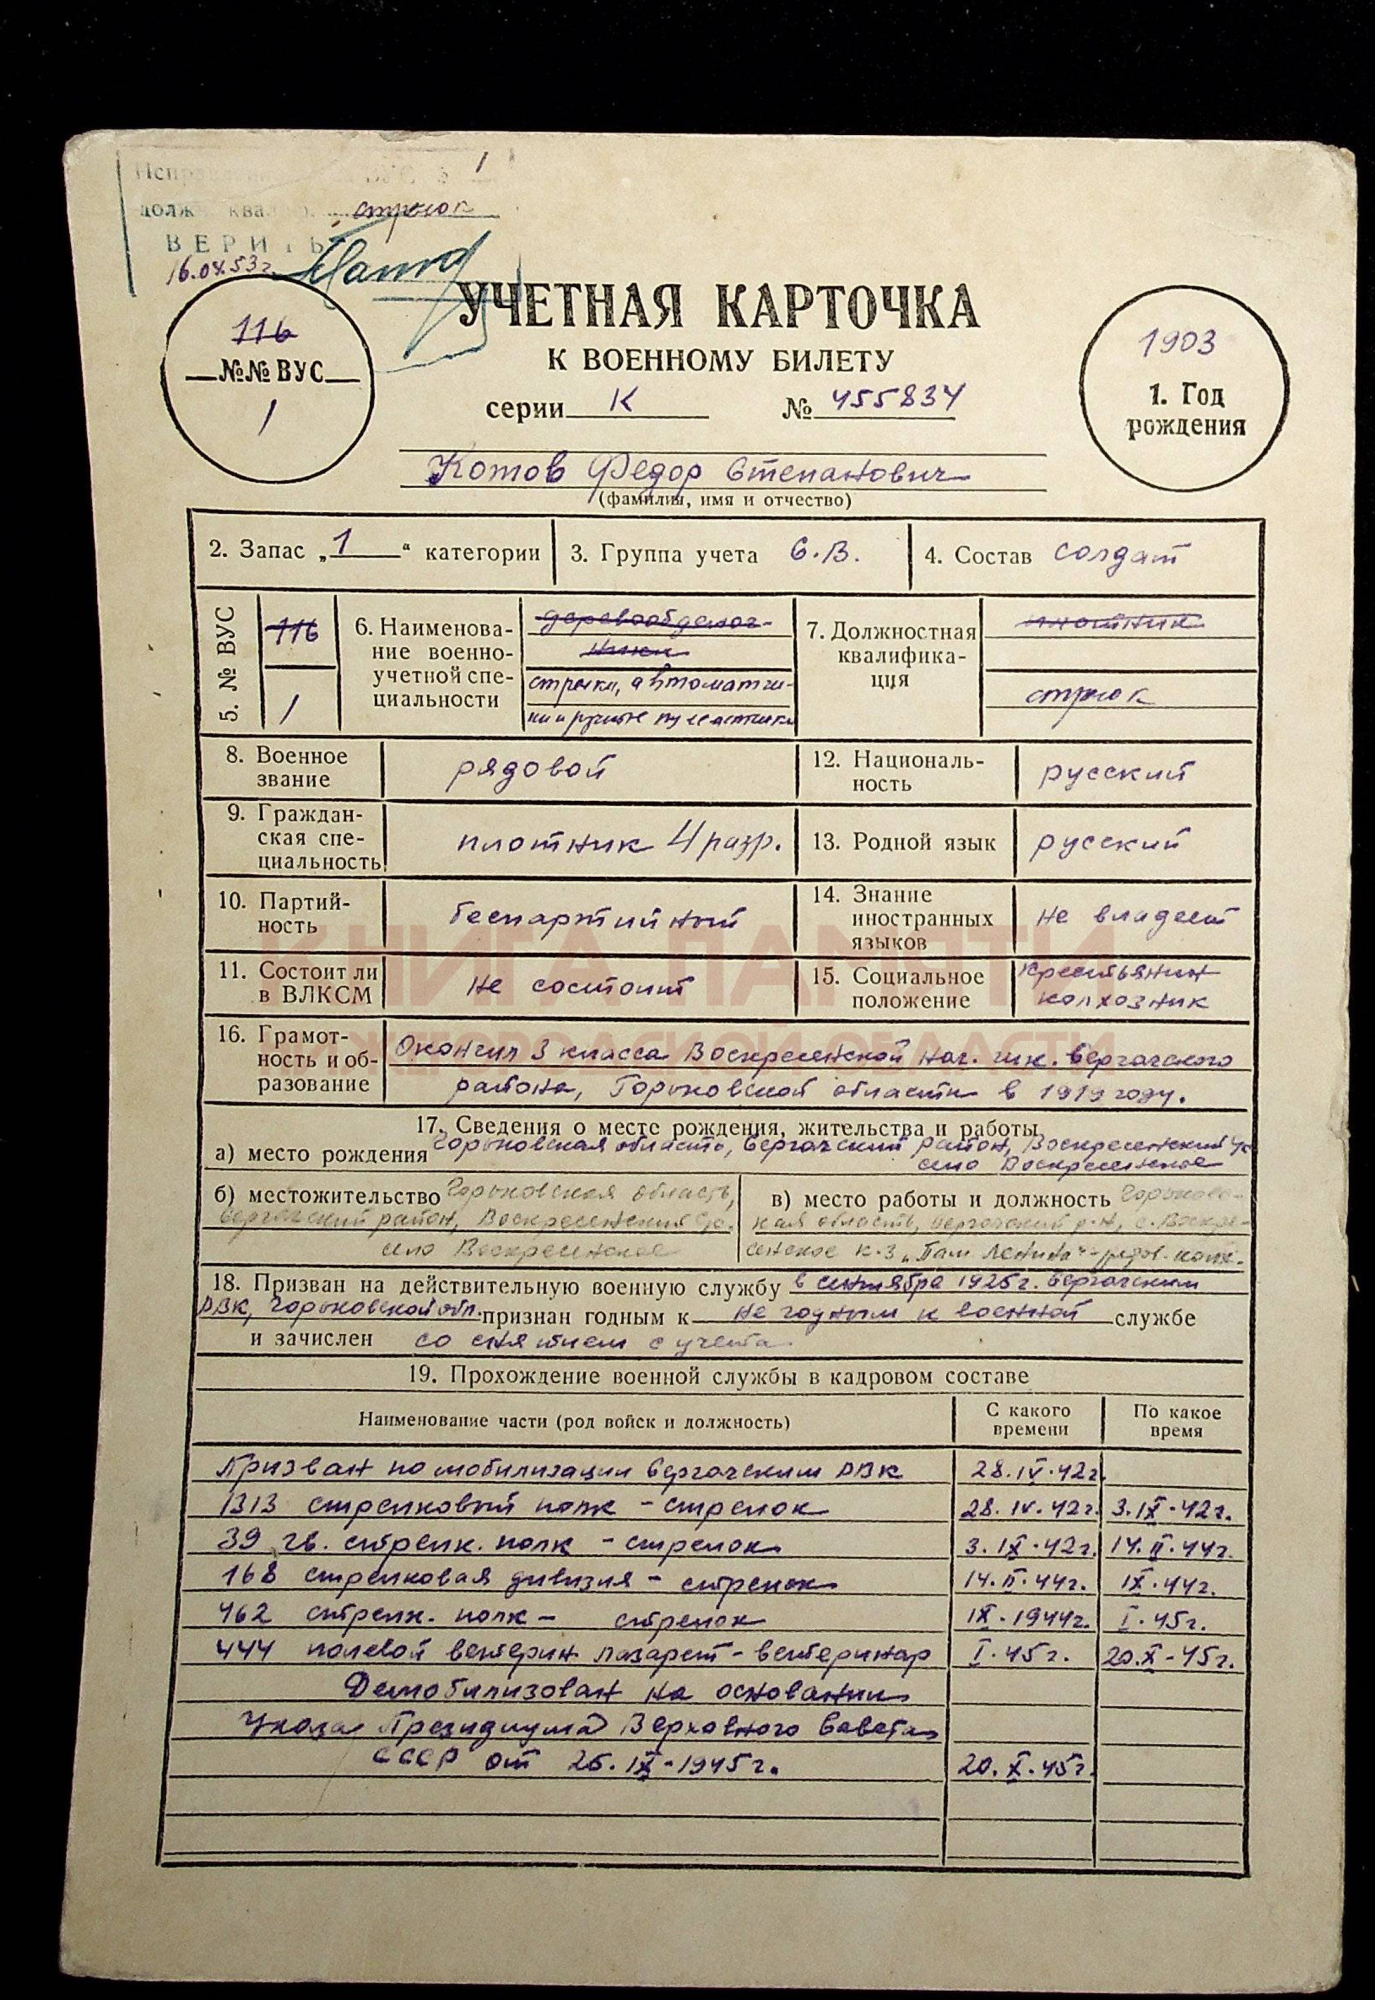 1
должн. квал. стрелок
ВЕРИТЬ
16.04.53г.
УЧЕТНАЯ КАРТОЧКА
К ВОЕННОМУ БИЛЕТУ
серии К № 455834
116
№№ ВУС
1
1903
1. Год
рождения
Котов Федор Степанович
(фамилия, имя и отчество)
2. Запас „1“ категории
3. Группа учета С.В.
4. Состав солдат
5. № ВУС
116
1
6. Наименова-
ние военно-
учетной спе-
циальности
деревообделоч-
ники
стрелки, автоматчи-
ки и ручные пулеметчики
7. Должностная
квалифика-
ция
плотник
стрелок
8. Военное
звание
рядовой
12. Националь-
ность
русский
9. Граждан-
ская спе-
циальность
плотник 4 разр.
13. Родной язык
русский
10. Партий-
ность
беспартийный
14. Знание
иностранных
языков
не владеет
11. Состоит ли
в ВЛКСМ
не состоит
15. Социальное
положение
крестьянин
колхозник
КНИГА ПАМЯТИ
НИЖЕГОРОДСКОЙ ОБЛАСТИ
16. Грамот-
ность и об-
разование
Окончил 3 класса Воскресенской нач. шк. Вергачского
района, Горьковской области в 1919 году.
17. Сведения о месте рождения, жительства и работы
а) место рождения Горьковская область, Вергачский район, Воскресенский
село Воскресенское
б) местожительство Горьковская область,
Вергачский район, Воскресенский с/с.
село Воскресенское
в) место работы и должность Горьковс-
кая область, Вергачский р-н, с. Воскре-
сенское к-з „Пам. Ленина“ - рядов. колх.
18. Призван на действительную военную службу в сентябре 1925г. Вергачским
РВК, Горьковской обл. признан годным к не годным к военной службе
и зачислен со снятием с учета
19. Прохождение военной службы в кадровом составе
Наименование части (род войск и должность)
С какого
времени
По какое
время
Призван по мобилизации Вергачским РВК 28.IV.42г.
1313 стрелковый полк - стрелок 28.IV.42г. 3.IX.42г.
39 гв. стрелк. полк - стрелок 3.IX.42г. 14.II.44г.
168 стрелковая дивизия - стрелок 14.II.44г. IX.44г.
462 стрелк. полк - стрелок IX.1944г. I.45г.
444 полевой ветерин. лазарет - ветеринар I.45г. 20.X-45г.
Демобилизован на основании
Указа Президиума Верховного Совета
СССР от 25.IX-1945г. 20.X.45г.